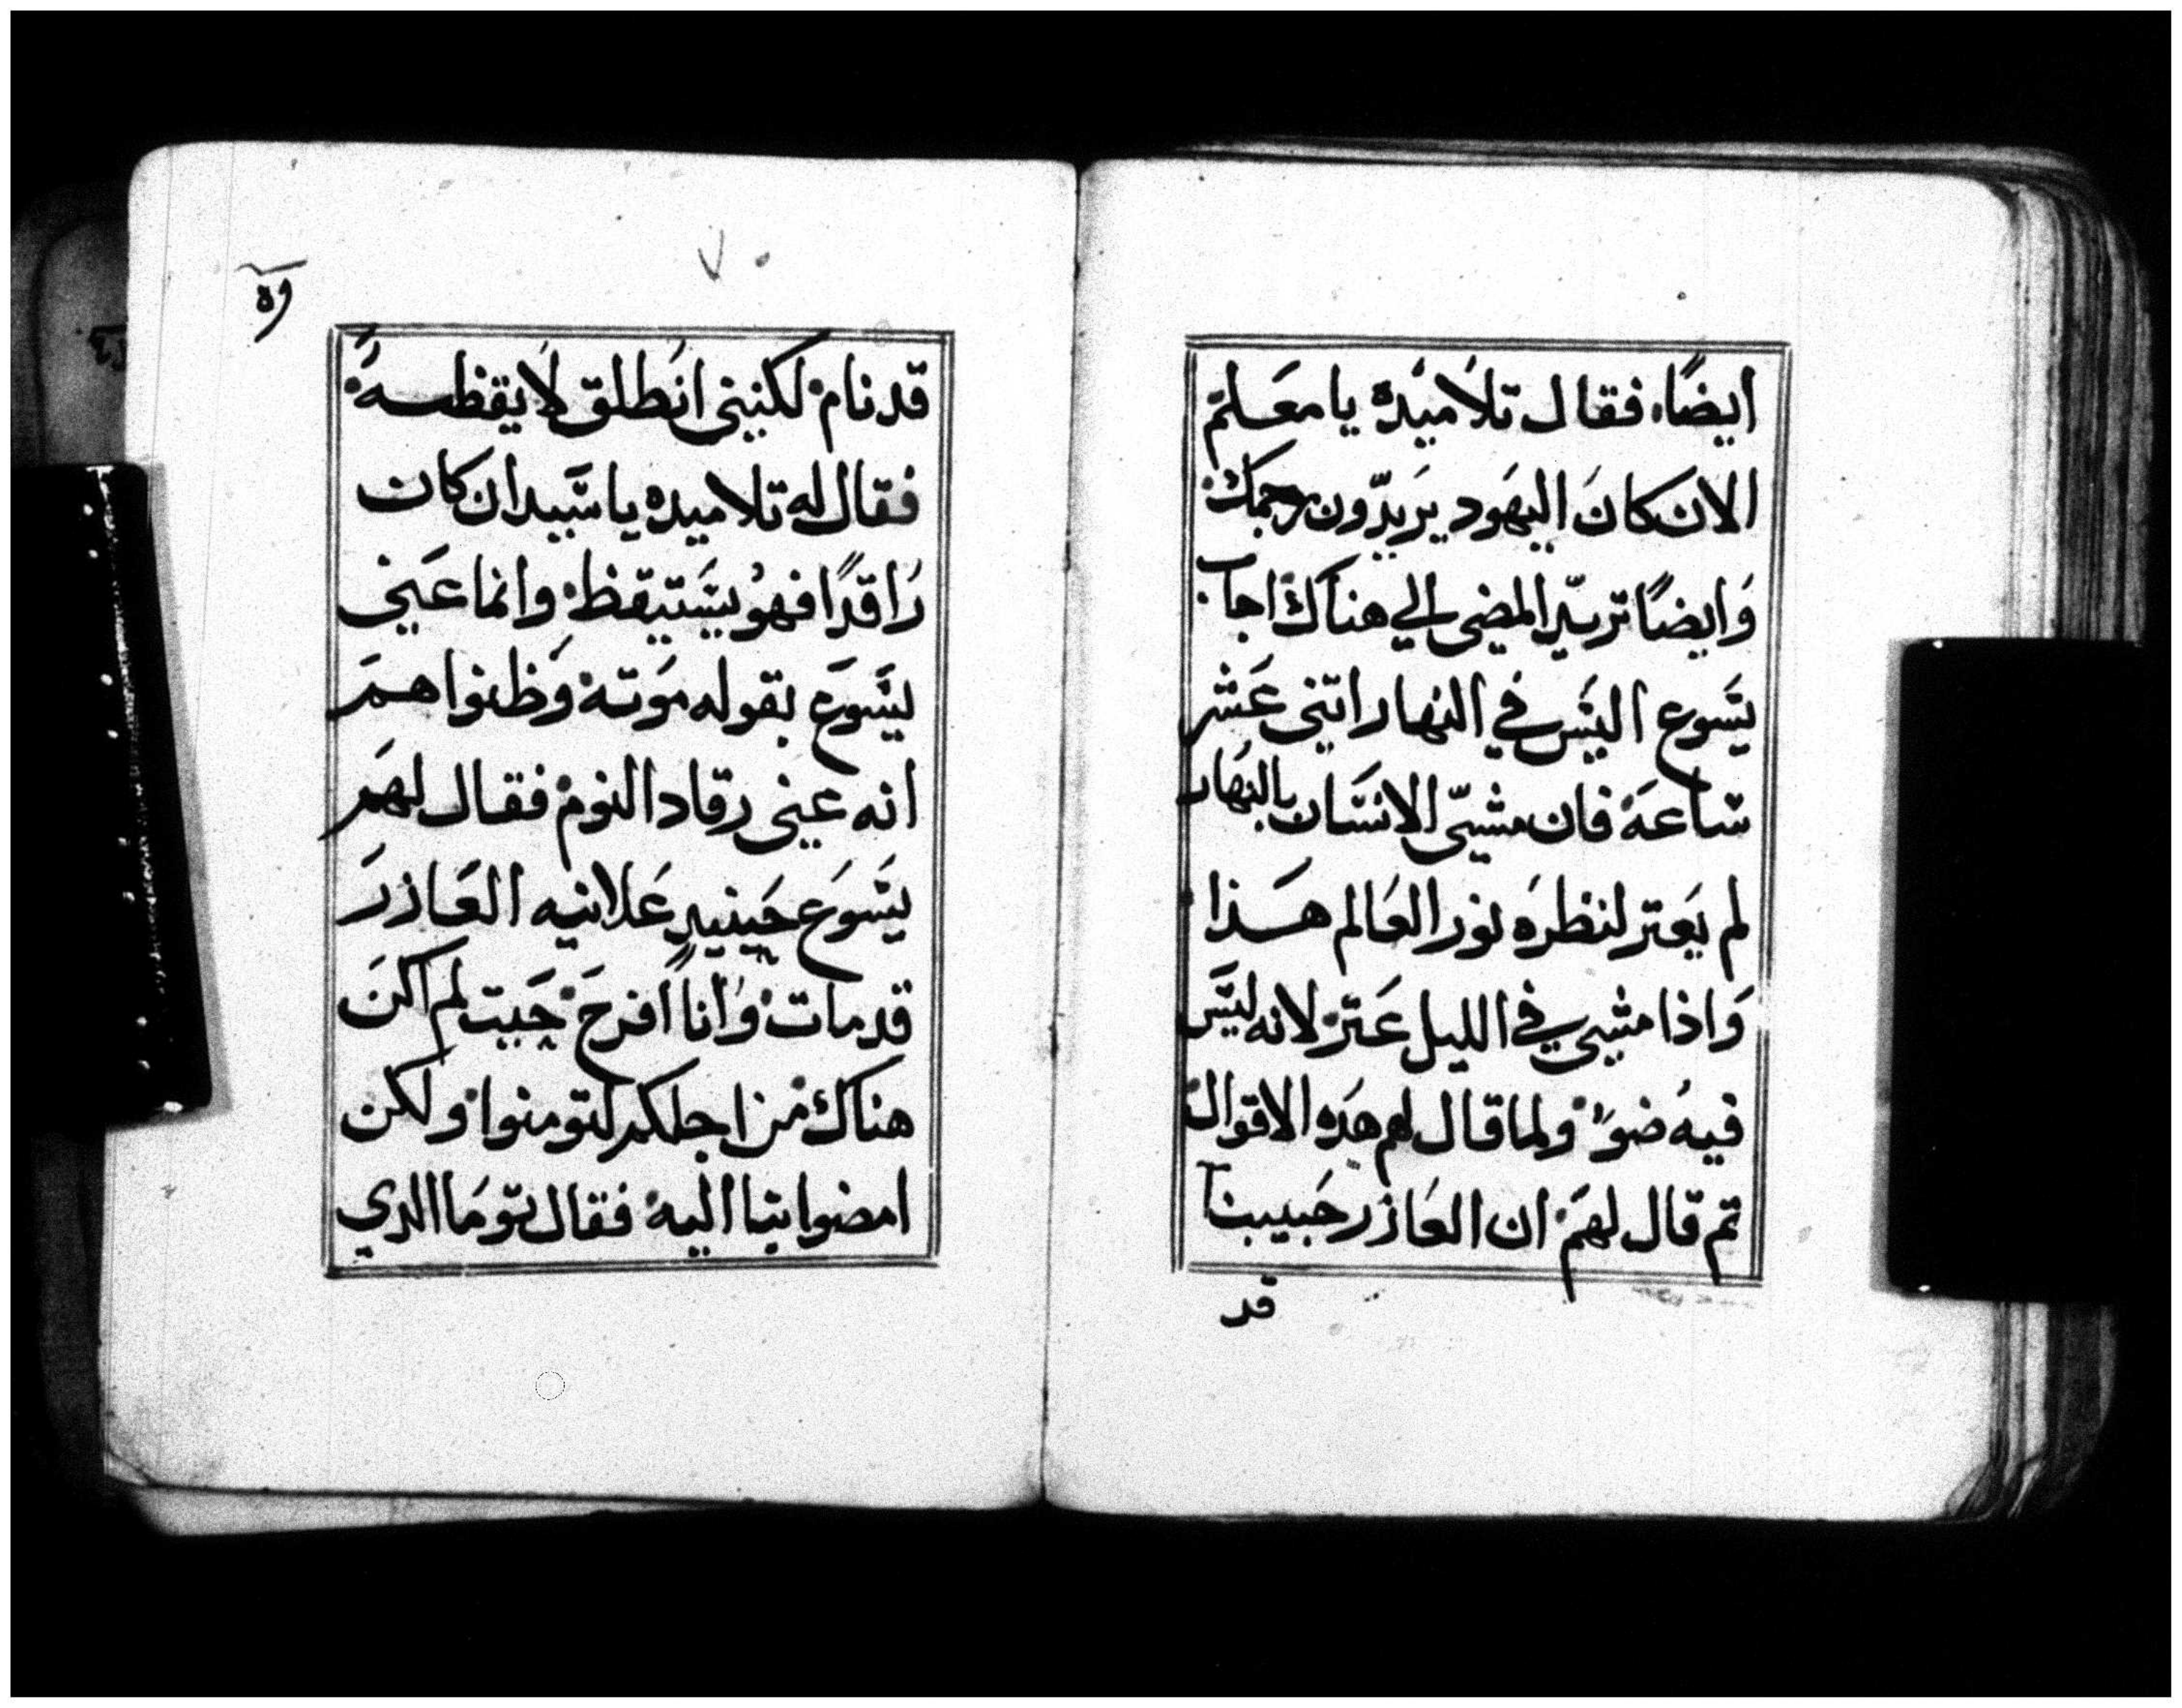 ايضًا، فقال تلاميده يا معَلم
الان كانَ اليهَود يرَيدّون رجمَك
وَايضًا تريدّ المضي الي هناك اجاب
يسَوع اليسَ في النهار اتني عَشر
ساعَة فان مشيّ الانسَان بالنهُار
لم يَعتر لنظرَه نور العَالم هَذا
وَاذا مشي في الليل عَتر لانه ليسَ
فيهُ ضوَء ولما قال لهم هَده الاقوال
تم قال لهمَ ان العَازر حَبيبنا
قد
٧٠
قد نام لكنيني انَطلق لاَيقظهَ
فقال له تلاميده يا سَيد ان كان
رَاقدًا فهوُ يسَتيقظ وانما عَني
يسَوَع بقوله موَته وَظنوا همَ
انه عني رقاد النوم فقال لهمَ
يسَوَع حَينيدٍ عَلانيه العَازرَ
قد مات وَانا افرحَ حَيت لم اكنَ
هناك من اجلكم لتومنوا ولكن
امضوا بنا اليه فقال توَمَا الدي